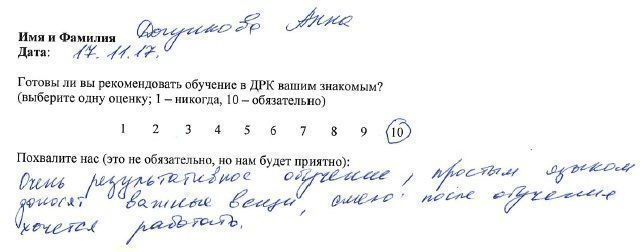 Имя и Фамилия Догучкова Анна
Дата: 17.11.17.
Готовы ли вы рекомендовать обучение в ДРК вашим знакомым?
(выберите одну оценку; 1 – никогда, 10 – обязательно)
1 2 3 4 5 6 7 8 9 10
Похвалите нас (это не обязательно, но нам будет приятно):
Очень результативное обучение, простым языком
доносят важные вещи, после обучение
хочется работать.